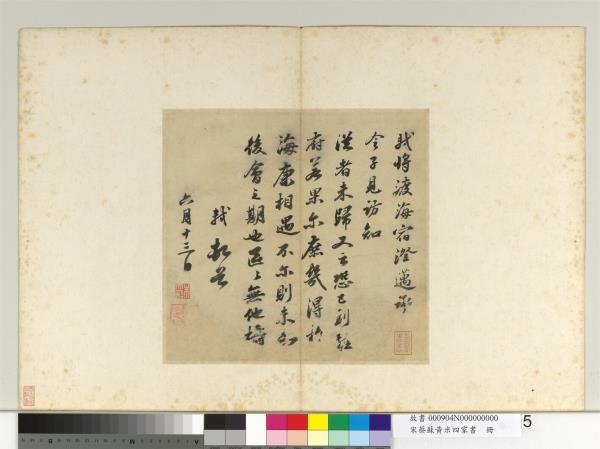 軾將渡海宿澄邁承
令子見訪知
從者未歸又云恐已到桂
府若果爾庶幾得於
海康相遇不爾則未知
後會之期也區區無他禱
軾頓首
六月十三日
故書 000904N000000000
宋蔡蘇黃米四家書 冊
5